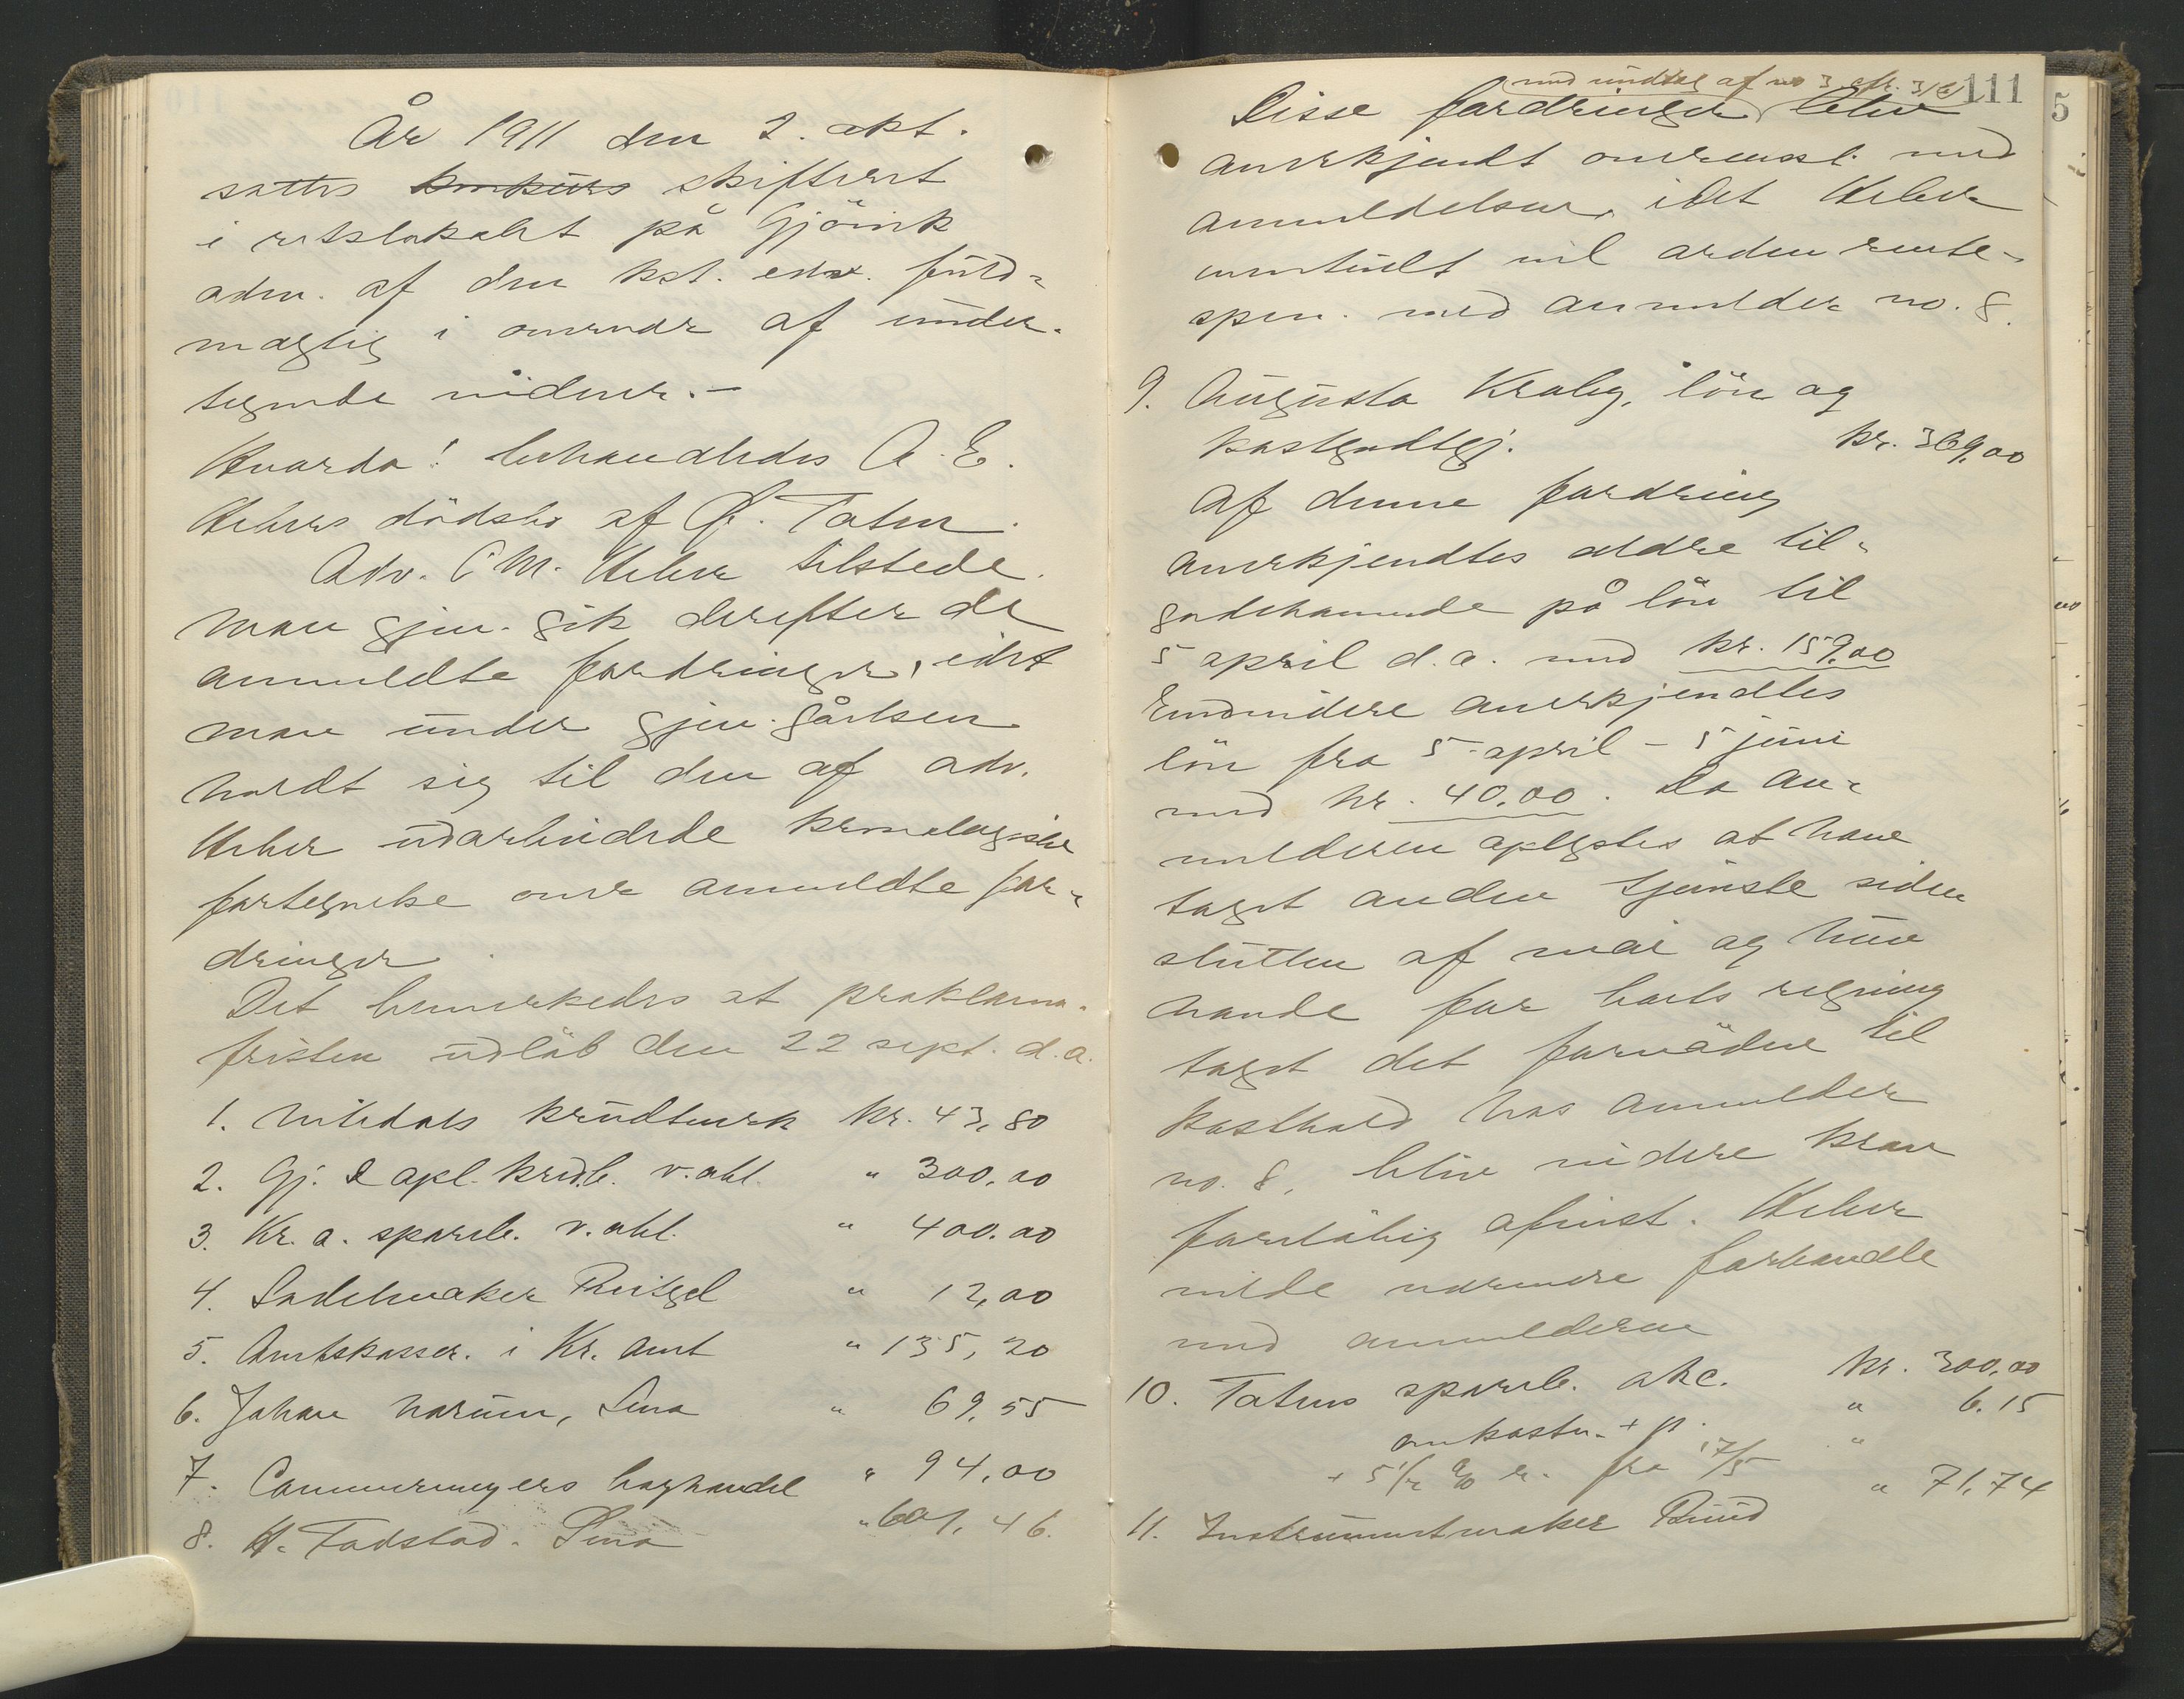 År 1911 den 2. okt.
sattes konkurs skifteret
i retslokalet på Gjövik
adm. af den kst. edsv. fuld-
mægtig i overvær af under-
tegnede vidner. –
Hvorda! behandledes A. E.
Hebers dödsbo af Ö. Toten.
Adv. C M. Heber tilstede.
Man gjen. gik derefter de
anmeldte fordringer, idet
man under gjen. gåelsen
holdt sig til den af adv.
Heber udarbeidede kronologiske
fortegnelse over anmeldte for-
dringer.
Det bemerkedes at proklama-
fristen udlöb den 22 sept. d. a.
1. Nitedals krudtverk kr. 43,80
2. Gj. & opl. kredb. v. obl. " 300,00
3. Kr. a. spareb. v. obl. " 400.00
4. Sadelmaker " 12,00
5. Amtskasser. i Kr. amt " 135,20
6. Johan Narum, Lena " 69,55
7. Cammermeyers boghandel " 94,00
8. H. Fodstad. Lena " 601,46.
111
med undtag af no 3 cfr.
Disse fordringer blev
anerkjendt overensst. med
anmeldelsen, idet Heber
eventuelt vil ordne rente-
spm. med anmelder no. 8.
9. Augusta Kraby, lön og
kostgodtgj. kr. 369,00
Af denne fordring
anerkjendtes ældre til-
godehavende på lön til
5 april d. a. med kr. 159,00
Endvidere anerkjendtes
lön fra 5 april – 5 juni
med kr. 40,00. Da an-
melderen oplystes at have
taget anden tjeneste siden
slutten af mai og hun
havde for boets regning
taget det fornödne til
kosthold hos anmelder
no. 8, blev videre krav
forelöbig afvist. Heber
vilde nærmere forhandle
med anmelderen
10. Totens spareb. akc. kr. 300,00
omkostn. + p. " 6.15
+ 5 1/2 % r. fra 17/5 "
11. Instrumentmaker Ruud " 71,74
5